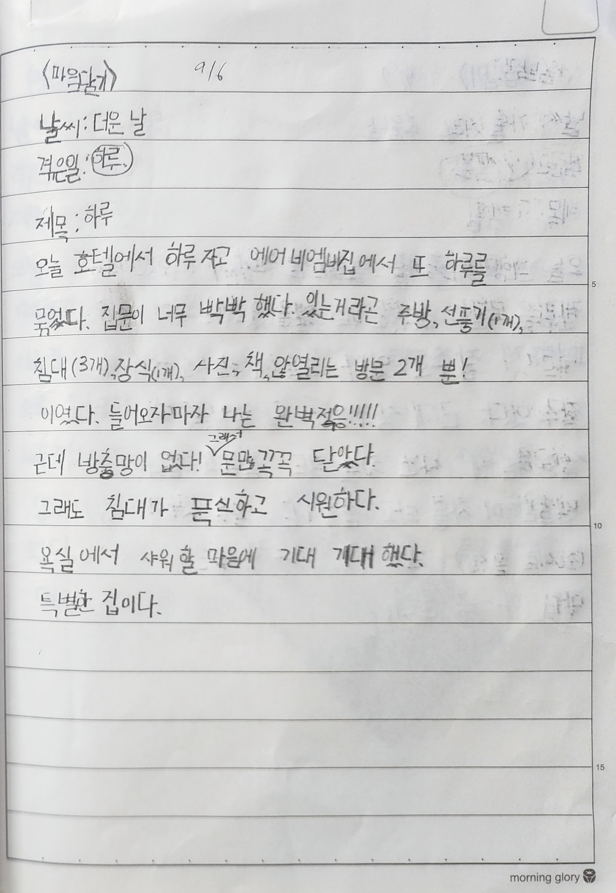 <마음닫기> 9/6
날씨: 더운 날
겪은일: 하루.
제목: 하루
오늘 호텔에서 하루 자고 에어비엠비집에서 또 하루를
5
묶었다. 집문이 너무 빡빡 했다. 있는거라곤 주방, 선풍기(1개),
침대(3개), 장식(1개), 사진, 책, 않열리는 방문 2개 뿐!
이였다. 들어오자마자 나는 완벽적응!!!!!
근데 방충망이 없다! 그래서 문만 꼭꼭 닫았다.
그래도 침대가 푹신하고 시원하다.
10
욕실에서 샤워할 마음에 기대 기대했다.
특별한 집이다.
15
morning glory